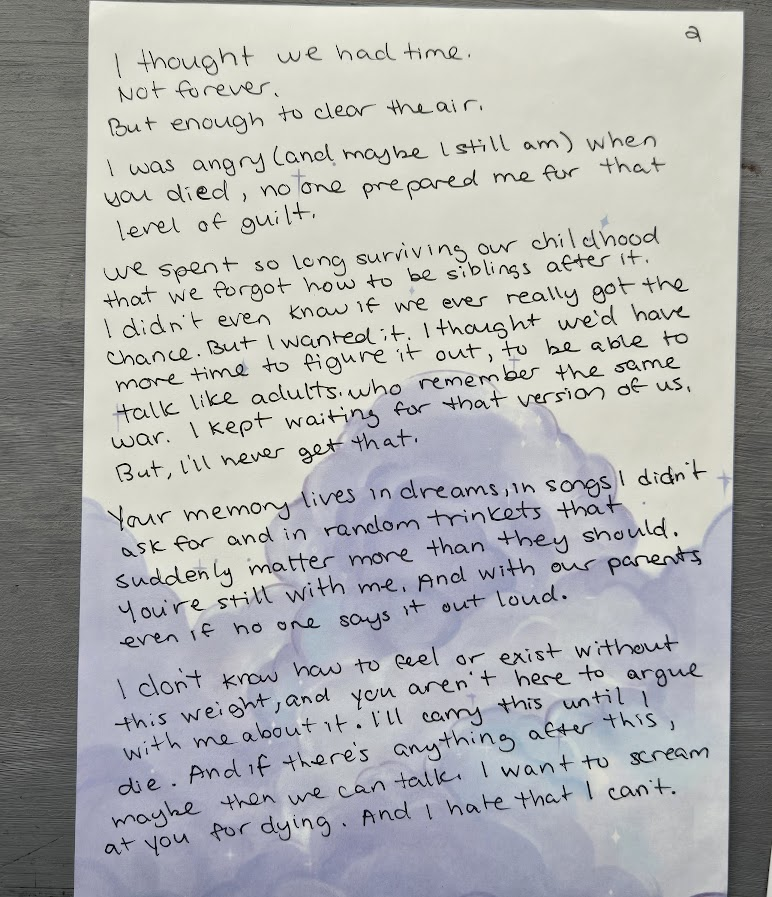 2
I thought we had time.
Not forever.
But enough to clear the air.
I was angry (and maybe I still am) when
you died, no one prepared me for that
level of guilt.
we spent so long surviving our childhood
that we forgot how to be siblings after it.
I didn't even know if we ever really got the
chance. But I wanted it. I thought we'd have
more time to figure it out, to be able to
talk like adults. who remember the same
war. I kept waiting for that version of us.
But, I'll never get that.
Your memory lives in dreams, in songs I didn't
ask for and in random trinkets that
suddenly matter more than they should.
You're still with me. And with our parents
even if no one says it out loud.
I don't know how to feel or exist without
this weight, and you aren't here to argue
with me about it. I'll carry this until I
die. And if there's anything after this,
maybe then we can talk. I want to scream
at you for dying. And I hate that I can't.